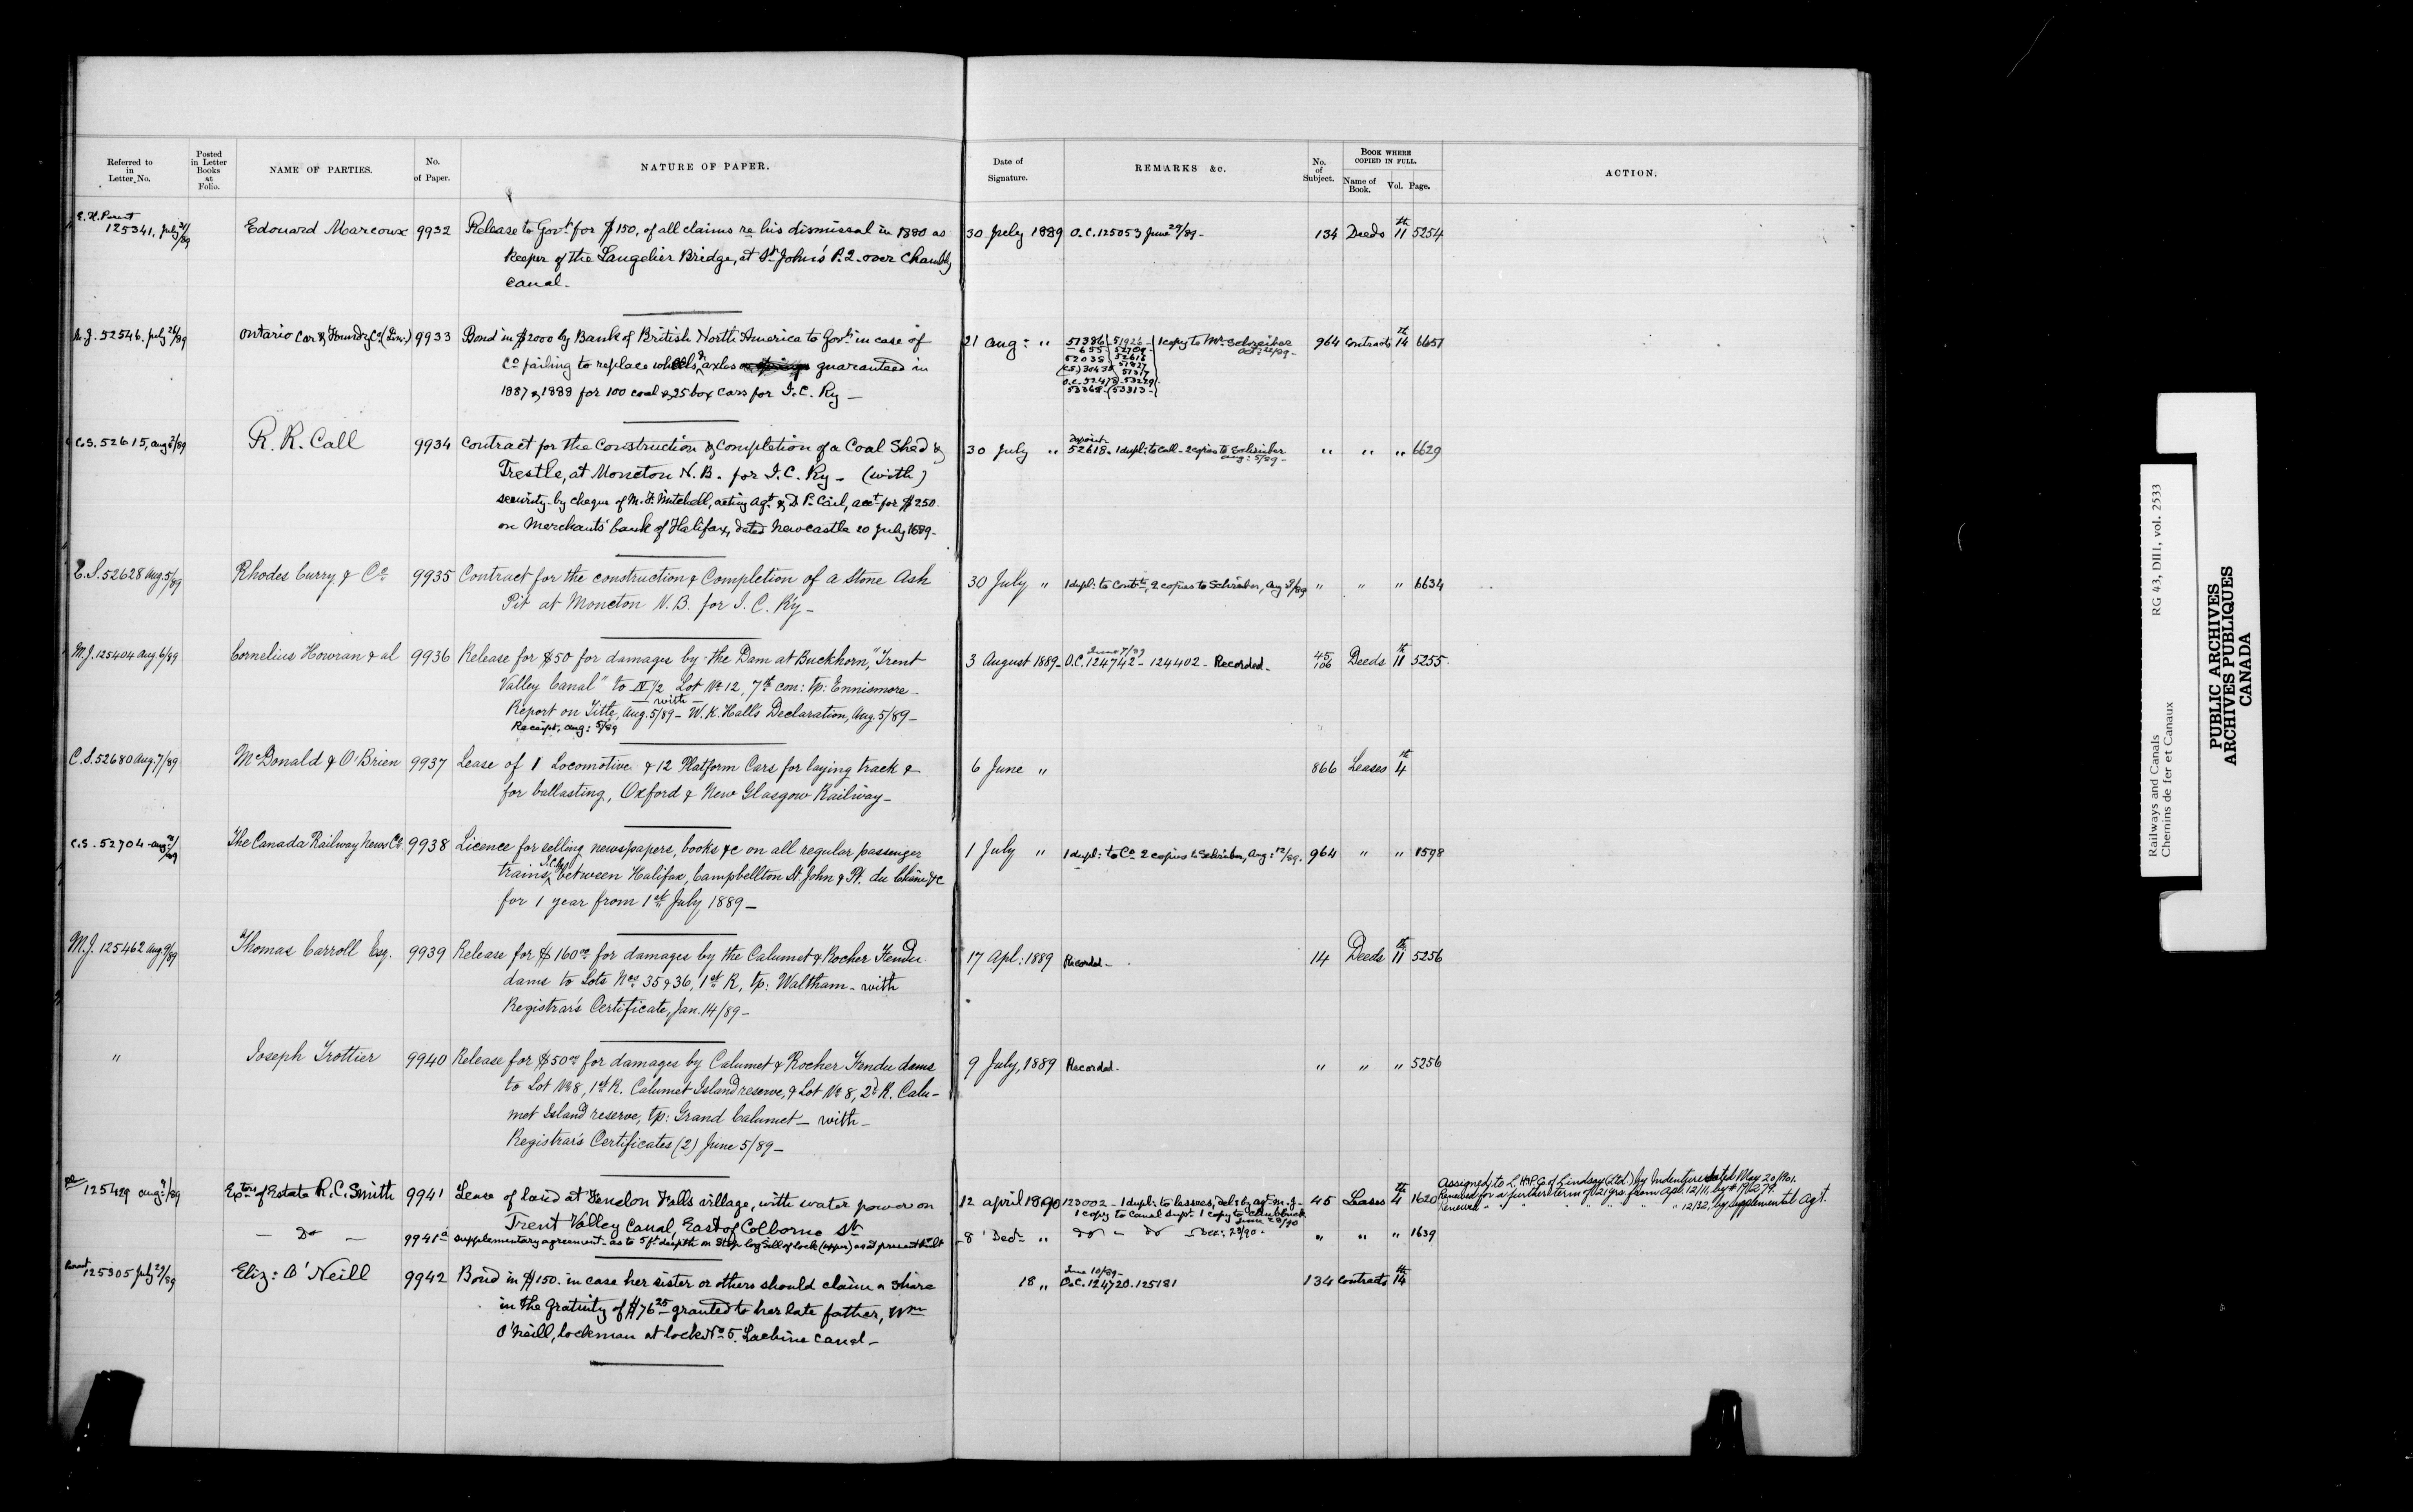 Referred to in Letter No. Posted in Letter Books at Folio. NAME OF PARTIES. No. of Paper. NATURE OF PAPER. Date of Signature. REMARKS &c. No. of Subject. BOOK WHERE COPIED IN FULL. Name of Book. Vol. Page. ACTION.
E. H. Parent
125341, July 31/89 Edouard Marcoux 9932 Release to Govt for $150, of all claims re his dismissal in 1880 as 30 July 1889 O.C. 125053 June 29/89 - 134 Deeds 11th 5254
Keeper of the Langelier Bridge, at St John's P.Q. over Chambly
Canal.
M.J. 52546. July 26/89 Ontario Car & Foundry Co (Lim:) 9933 Bond in $2000 by Bank of British North America to Govt in case of 21 Aug: " 57386 51926 - 1 copy to Mr Schreiber 964 Contracts 14th 6651
Co failing to replace wheels, & axles guaranteed in
1887 & 1888 for 100 coal & 25 box cars for I.C. Ry -
52035 52616
O.C. 52478 53229
53368 - 53313 -
C.S. 52615, Aug 3/89 R. R. Call 9934 Contract for the Construction & Completion of a Coal Shed & 30 July " Deposit 52618. 1 dupl: to Call - 2 copies to Schreiber Aug: 5/89 - " " " 6629
Trestle, at Moncton N.B. for I.C. Ry - (with)
security - by cheque of M. F. Mitchell, acting agt & D. P. Carl, acct for $250.
on Merchants' bank of Halifax, dated Newcastle 20 July 1889.
C.S. 52628 Aug. 5/89 Rhodes Curry & Co 9935 Contract for the construction & Completion of a Stone Ash 30 July " 1 dupl: to Contr, 2 copies to Schreiber, Aug 8/89 " " " 6634
Pit at Moncton N.B. for I. C. Ry -
M.J. 125404 Aug. 6/89 Cornelius Howran & al 9936 Release for $50 for damages by the Dam at Buckhorn, "Trent 3 August 1889 - June 7/89 O.C. 124742 - 124402 - Recorded - 45/106 Deeds 11th 5255
Valley Canal" to N 1/2 Lot No 12, 7th con: tp: Ennismore
- with -
Report on Title, Aug. 5/89 - W. K. Hall's Declaration, Aug. 5/89 -
Receipt, Aug: 5/89
C.S. 52680 Aug. 7/89 McDonald & O'Brien 9937 Lease of 1 Locomotive & 12 Platform Cars for laying track & 6 June " 866 Leases 4th
for ballasting, Oxford & New Glasgow Railway -
C.S. 52704 - Aug: /89 The Canada Railway News Co. 9938 Licence for selling newspapers, books &c on all regular passenger 1 July " 1 dupl: to Co 2 copies to Schreiber, Aug: 12/89. 964 " " 1598
trains, I.C. Ry between Halifax, Campbellton St. John & Pt. du Chêne &c
for 1 year from 1st July 1889 -
M.J. 125462 Aug. 9/89 Thomas Carroll Esq. 9939 Release for $160.00 for damages by the Calumet & Rocher Fendu 17 Apl: 1889 Recorded - 14 Deeds 11th 5256
dams to Lots Nos 35 & 36, 1st R, tp: Waltham - with
Registrar's Certificate, Jan. 14/89 -
" Joseph Trottier 9940 Release for $50.00 for damages by Calumet & Rocher Fendu dams 9 July, 1889 Recorded. " " " 5256
to Lot No 8, 1st R. Calumet Island reserve, & Lot No 8, 2d R. Calu-
met Island reserve, tp: Grand Calumet - with -
Registrar's Certificates (2) June 5/89 -
125429 Aug: 9/89 Extors of Estate R. C. Smith 9941 Lease of land at Fenelon Falls village, with water power on 12 April 1890 123002 - 1 dupl: to lessees, del: by agt. m.j - 45 Leases 4th 1620 Assigned to L, H & P. Co of Lindsay (Ltd.) by Indenture dated May 20/1901.
Trent Valley Canal, East of Colborne St 1 copy to Canal Supt. 1 copy to Chubbuck June 28/90 Renewed for a further term of 21 yrs. from Apl. 12/11, by # 19279.
Renewed " " " " " " " 12/32, by supplemental Agt.
- Do - 9941a Supplementary agreement - as to 5 ft depth on Stop log Sill of lock (upper) as at present built 8 Decr " do - do - Dec: 29/90 - " " " 1639
Parent 125305 July 29/89 Eliz: O'Neill 9942 Bond in $150. in case her sister or others should claim a share 18 " June 10/89 - O.C. 124720. 125181 134 Contracts 14th
in the Gratuity of $76.25 granted to her late father, Wm
O'Neill, lockman at lock No 5. Lachine Canal -
Railways and Canals RG 43, DII1, vol. 2533
Chemins de fer et Canaux
PUBLIC ARCHIVES
ARCHIVES PUBLIQUES
CANADA